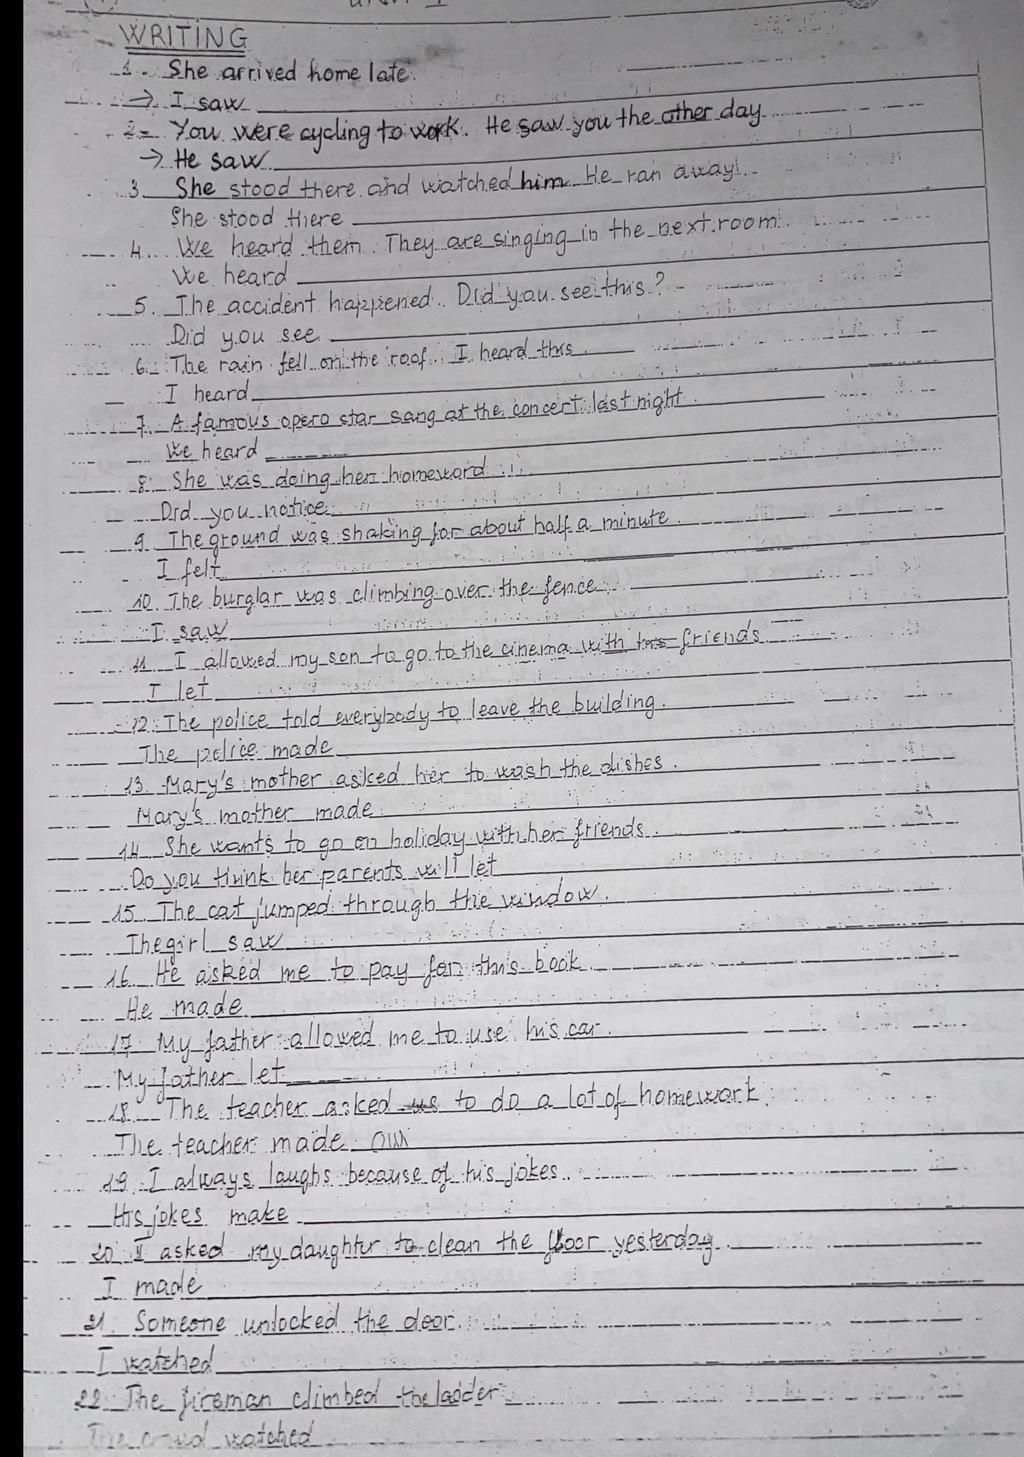 WRITING
1. She arrived home late.
→ I saw
2. You were cycling to work. He saw you the other day
→ He saw
3. She stood there and watched him. He ran away.
She stood there
4. We heard them. They are singing in the next room.
We heard
5. The accident happened. Did you see this?
Did you see
6. The rain fell on the roof. I heard this
I heard
7. A famous opera star sang at the concert last night.
We heard
8. She was doing her homeword
Did you notice
9. The ground was shaking for about half a minute.
I felt
10. The burglar was climbing over the fence.
I saw
11. I allowed my son to go to the cinema with his friends
I let
12. The police told everybody to leave the building.
The police made
13. Mary's mother asked her to wash the dishes.
Mary's mother made
14. She wants to go on holiday with her friends.
Do you think her parents will let
15. The cat jumped through the window.
The girl saw
16. He asked me to pay for this book.
He made
17. My father allowed me to use his car.
My father let
18. The teacher asked us to do a lot of homework.
The teacher made
19. I always laughs because of his jokes.
His jokes make
20. I asked my daughter to clean the floor yesterday.
I made
21. Someone unlocked the door.
I watched
22. The fireman climbed the ladder.
The crowd watched